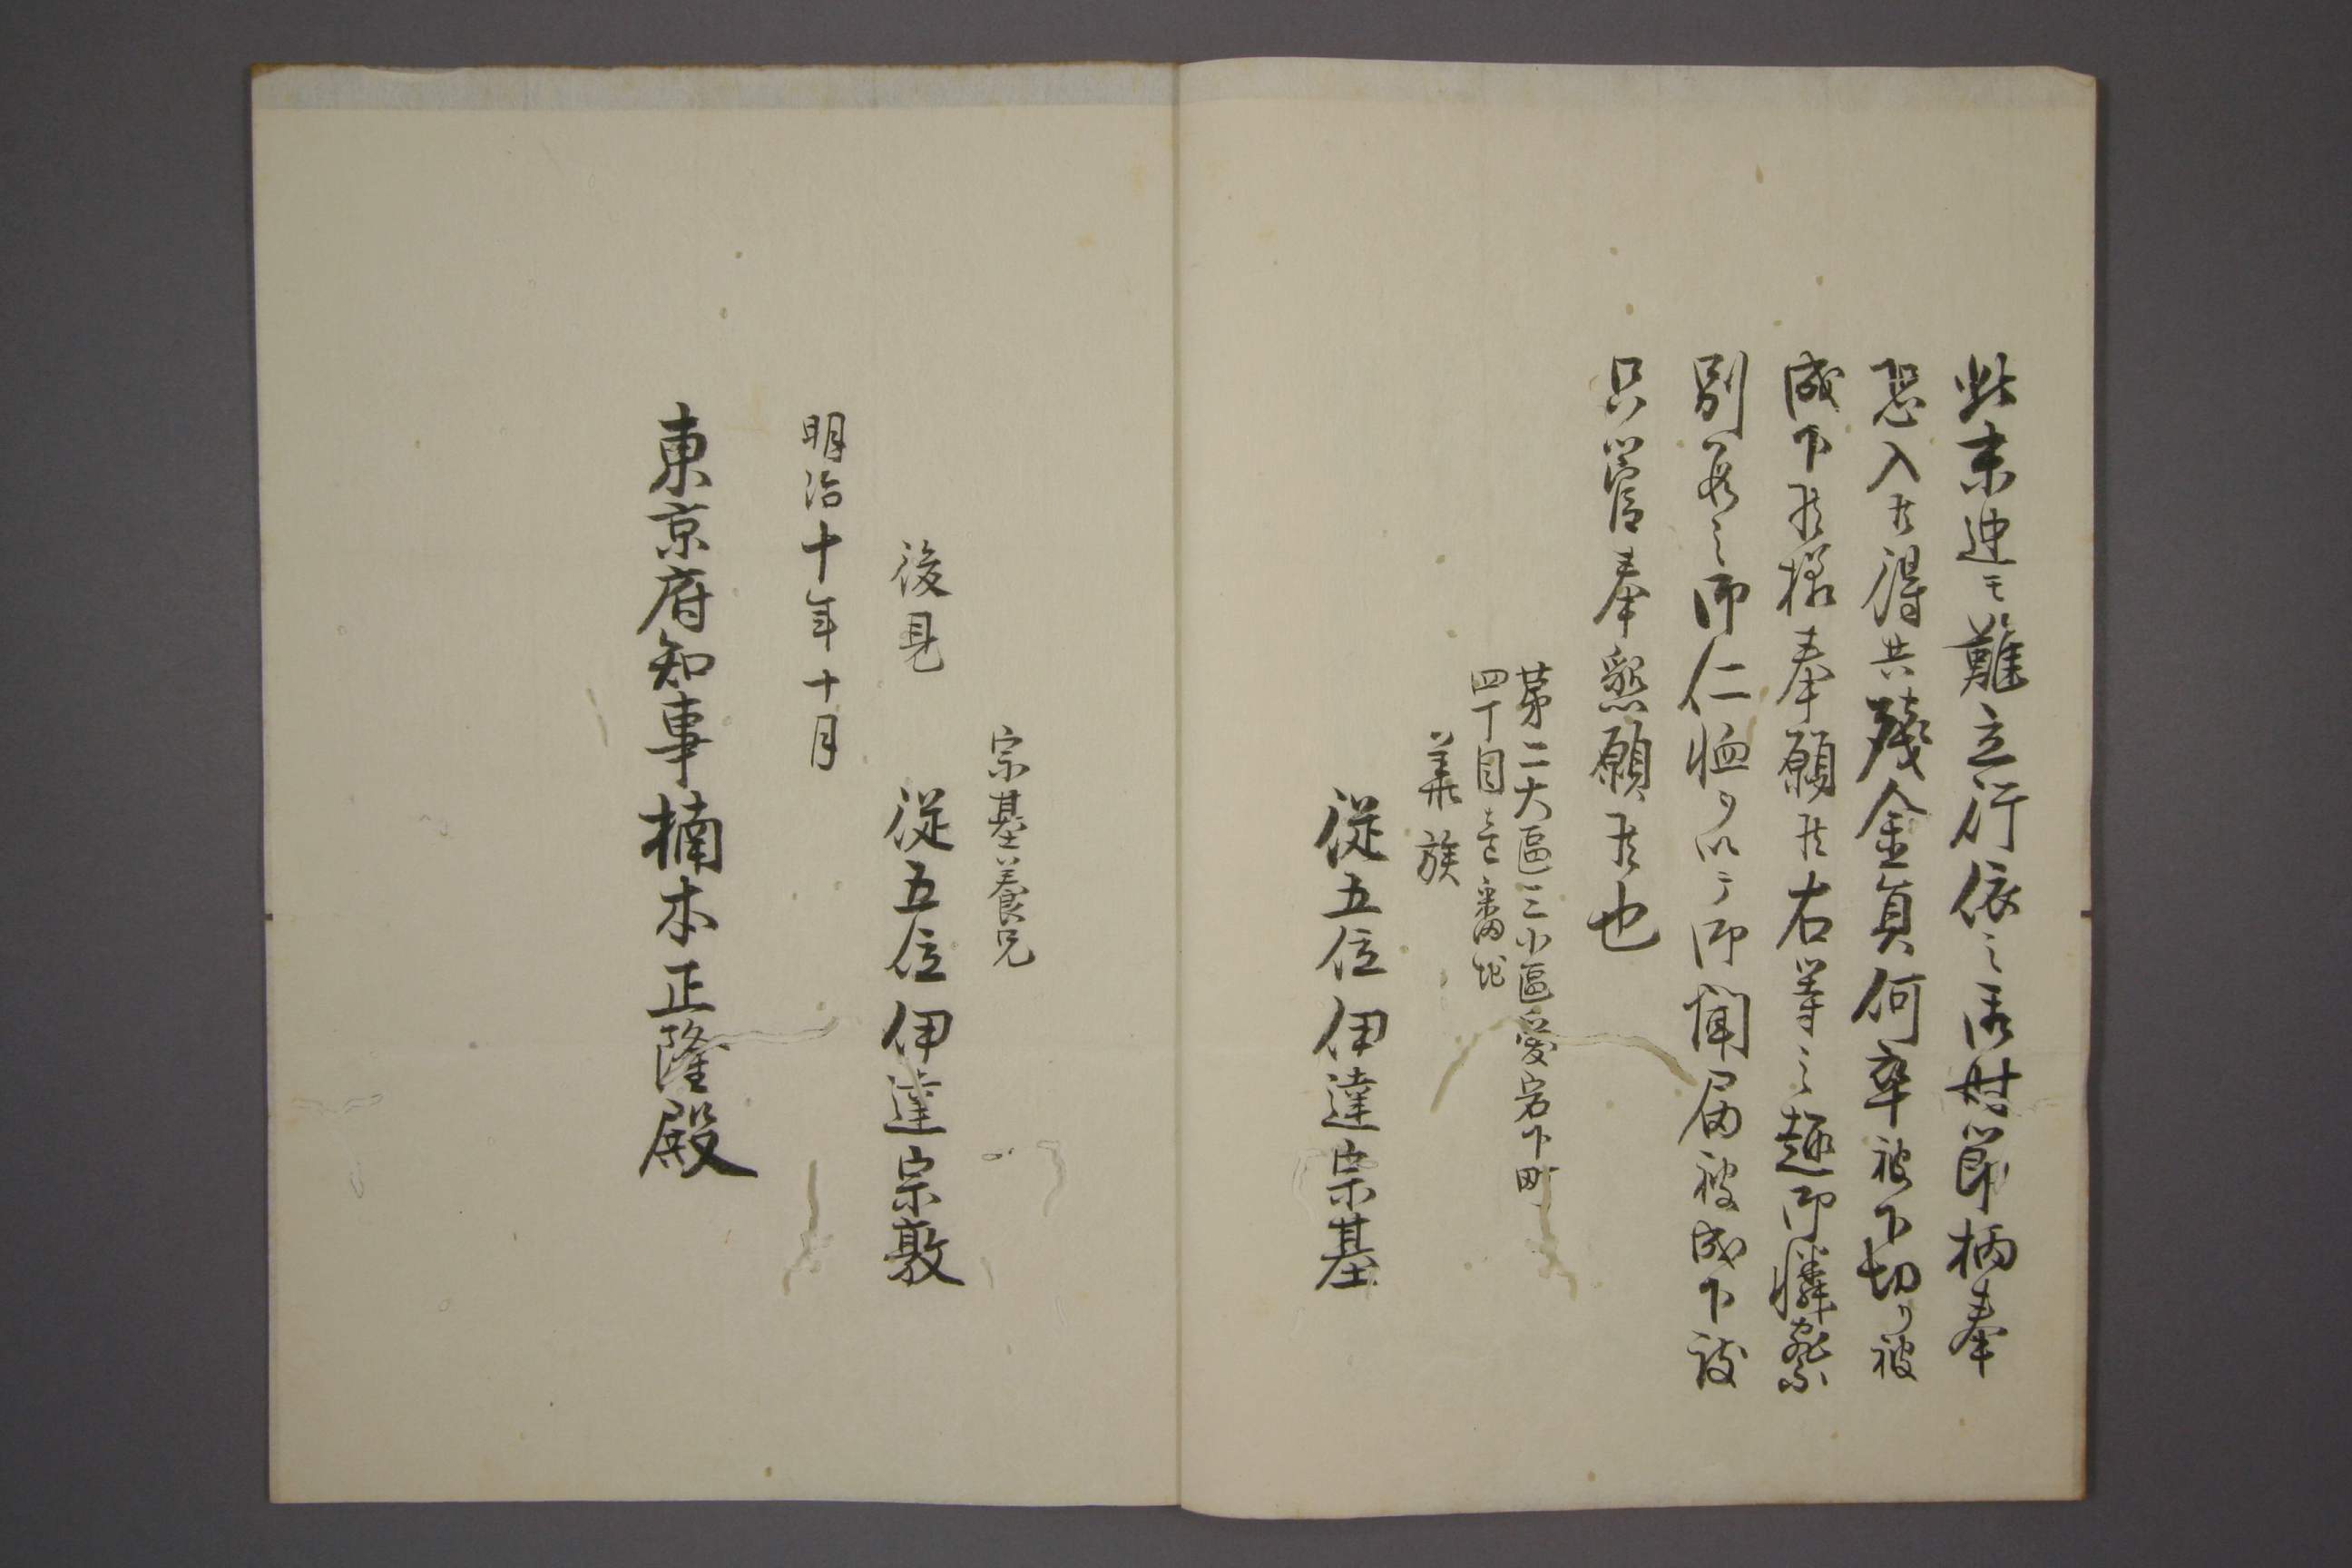 此末迚モ難立行依之御時節柄奉
恐入候得共殘金員何卒被下切リ被
成下候樣奉願候右等之趣御憐察
別段之御仁恤ヲ以テ御聞屆被成下度
只管奉懇願候也
第二大區三小區愛宕下町
四丁目壱番地
華族
從五位伊達宗基
宗基養兄
後見 從五位伊達宗敦
明治十年十月
東京府知事楠本正隆殿